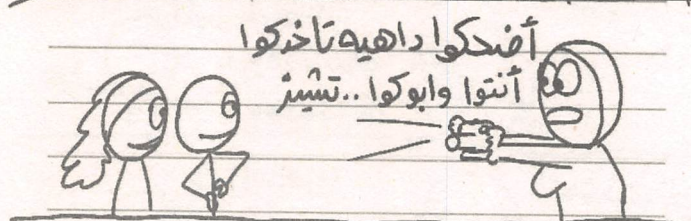 أضحكوا داهيه تاخدكوا
أنتوا وابوكوا .. تشييز